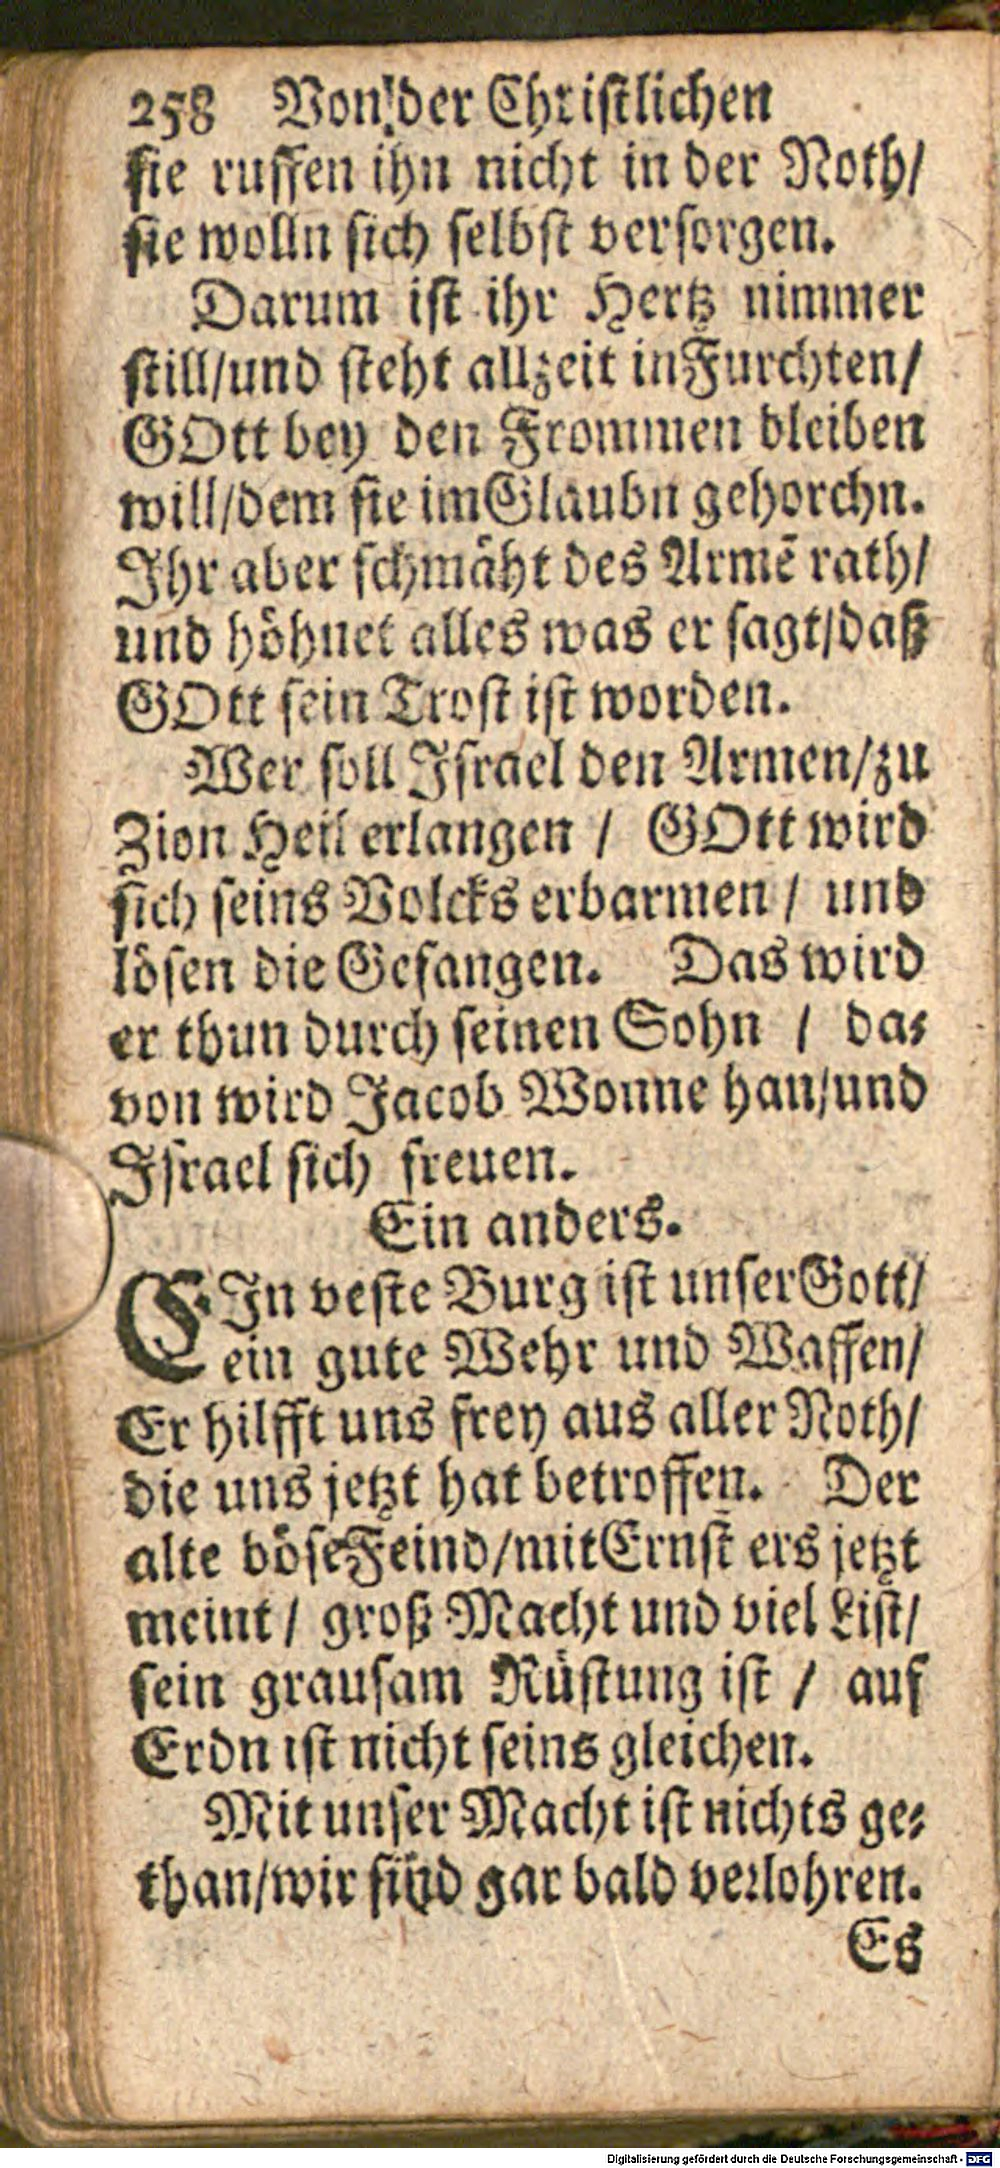 258 Von der Christlichen
sie ruffen ihn nicht in der Noth/
sie wolln sich selbst versorgen.
Darum ist ihr Hertz nimmer
still/und steht allzeit in Furchten/
GOtt bey den Frommen bleiben
will/dem sie im Glaubn gehorchn.
Ihr aber schmäht des Armē rath/
und höhnet alles was er sagt/daß
GOtt sein Trost ist worden.
Wer soll Israel den Armen/zu
Zion Heil erlangen / GOtt wird
sich seins Volcks erbarmen / und
lösen die Gefangen. Das wird
er thun durch seinen Sohn / da-
von wird Jacob Wonne han/und
Israel sich freuen.
Ein anders.
EIn veste Burg ist unser Gott/
ein gute Wehr und Waffen/
Er hilfft uns frey aus aller Noth/
die uns jetzt hat betroffen. Der
alte böse Feind/mit Ernst ers jetzt
meint / groß Macht und viel List/
sein grausam Rüstung ist / auf
Erdn ist nicht seins gleichen.
Mit unser Macht ist nichts ge-
than/wir sind gar bald verlohren.
Es
Digitalisierung gefördert durch die Deutsche Forschungsgemeinschaft - DFG